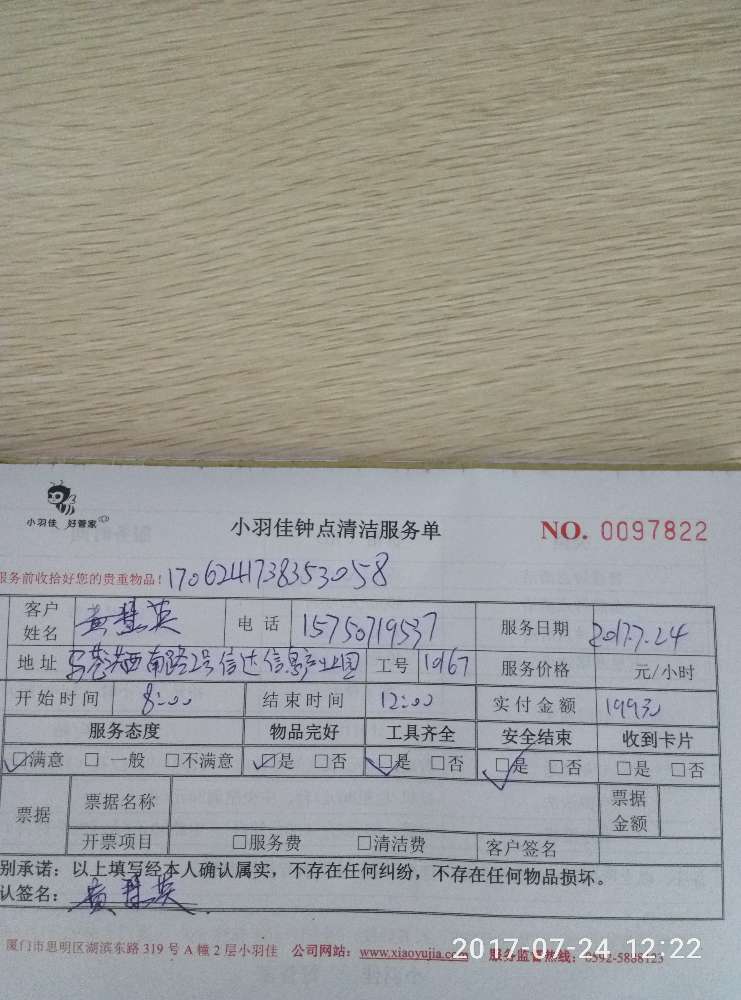 小羽佳 好管家
小羽佳钟点清洁服务单
NO. 0097822
服务前收拾好您的贵重物品! 1706241738353058
客户姓名 黄慧英 电话 15750719537 服务日期 2017.7.24
地址 马巷 西南路2号信达信息产业园 工号 10167 服务价格 元/小时
开始时间 8:00 结束时间 12:00 实付金额 199.30
服务态度 物品完好 工具齐全 安全结束 收到卡片
☑满意 □一般 □不满意 ☑是 □否 ☑是 □否 ☑是 □否 □是 □否
票据 票据名称 票据金额
开票项目 □服务费 □清洁费 客户签名
别承诺:以上填写经本人确认属实,不存在任何纠纷,不存在任何物品损坏。
认签名: 黄慧英
厦门市思明区湖滨东路 319 号 A 幢 2 层小羽佳 公司网站:www.xiaoyujia.com 服务监督热线:0592-5888123
2017-07-24 12:22